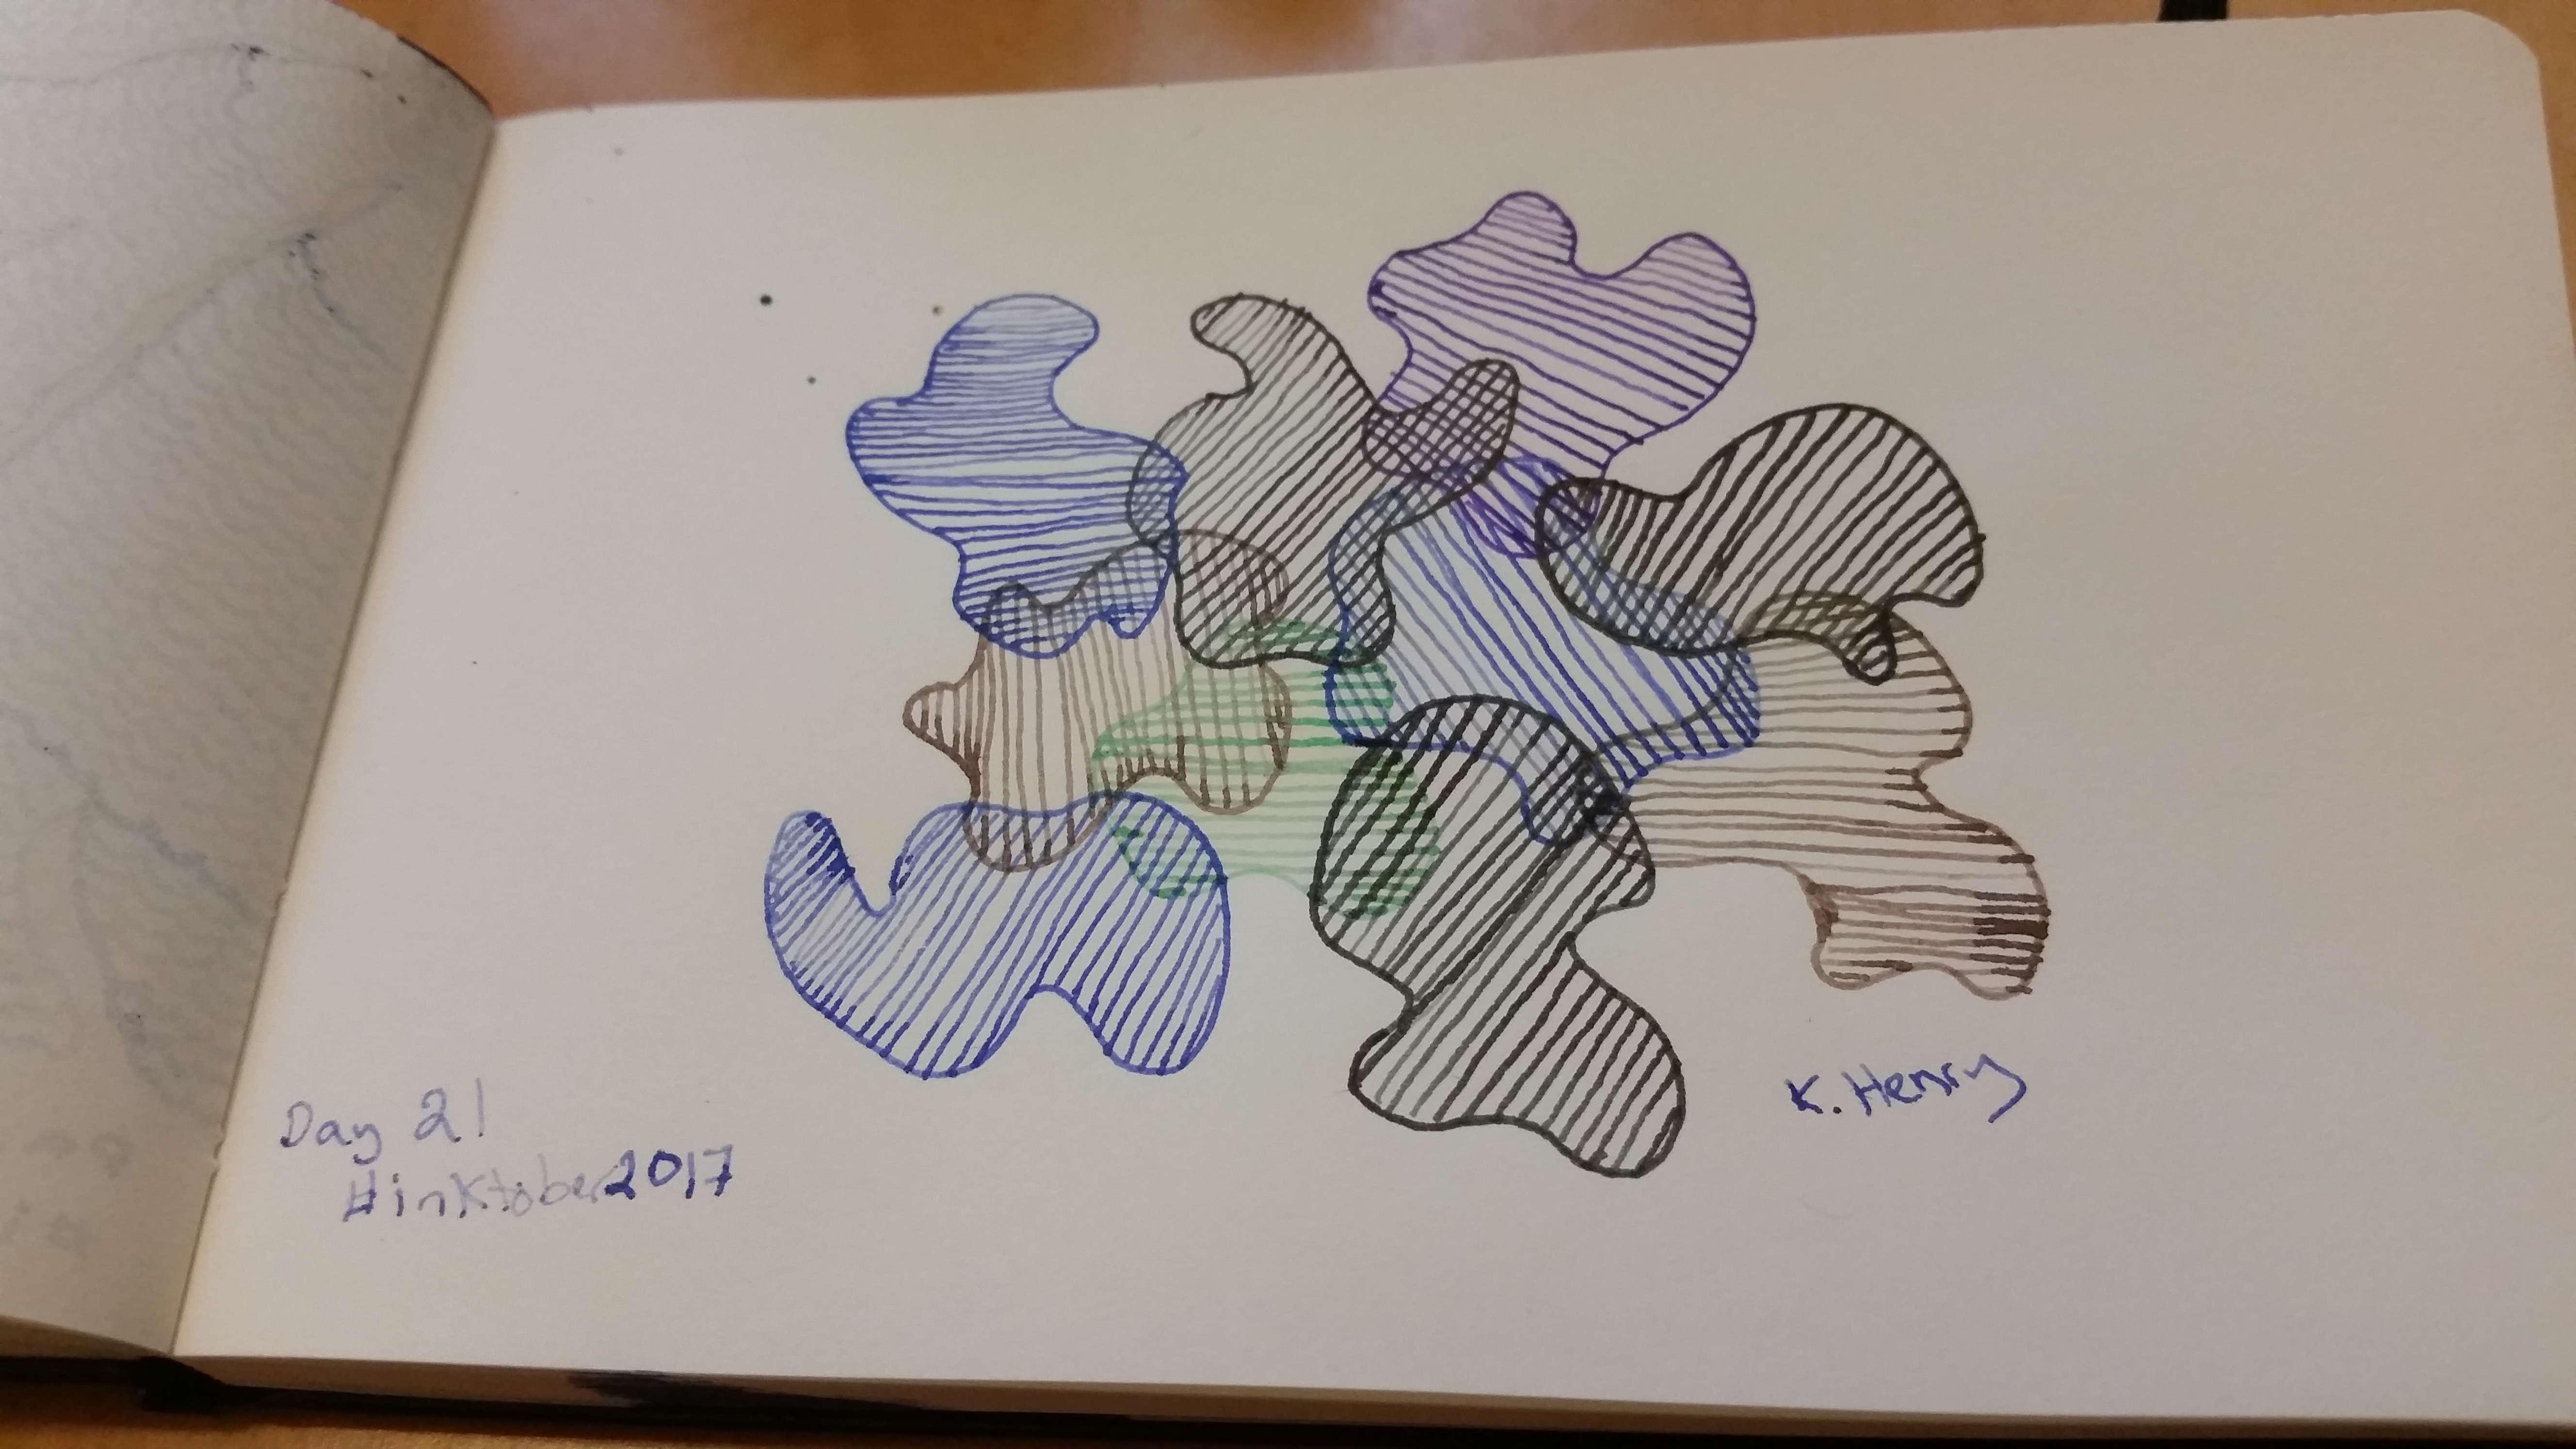 Day 21
#inktober2017
K. Henry